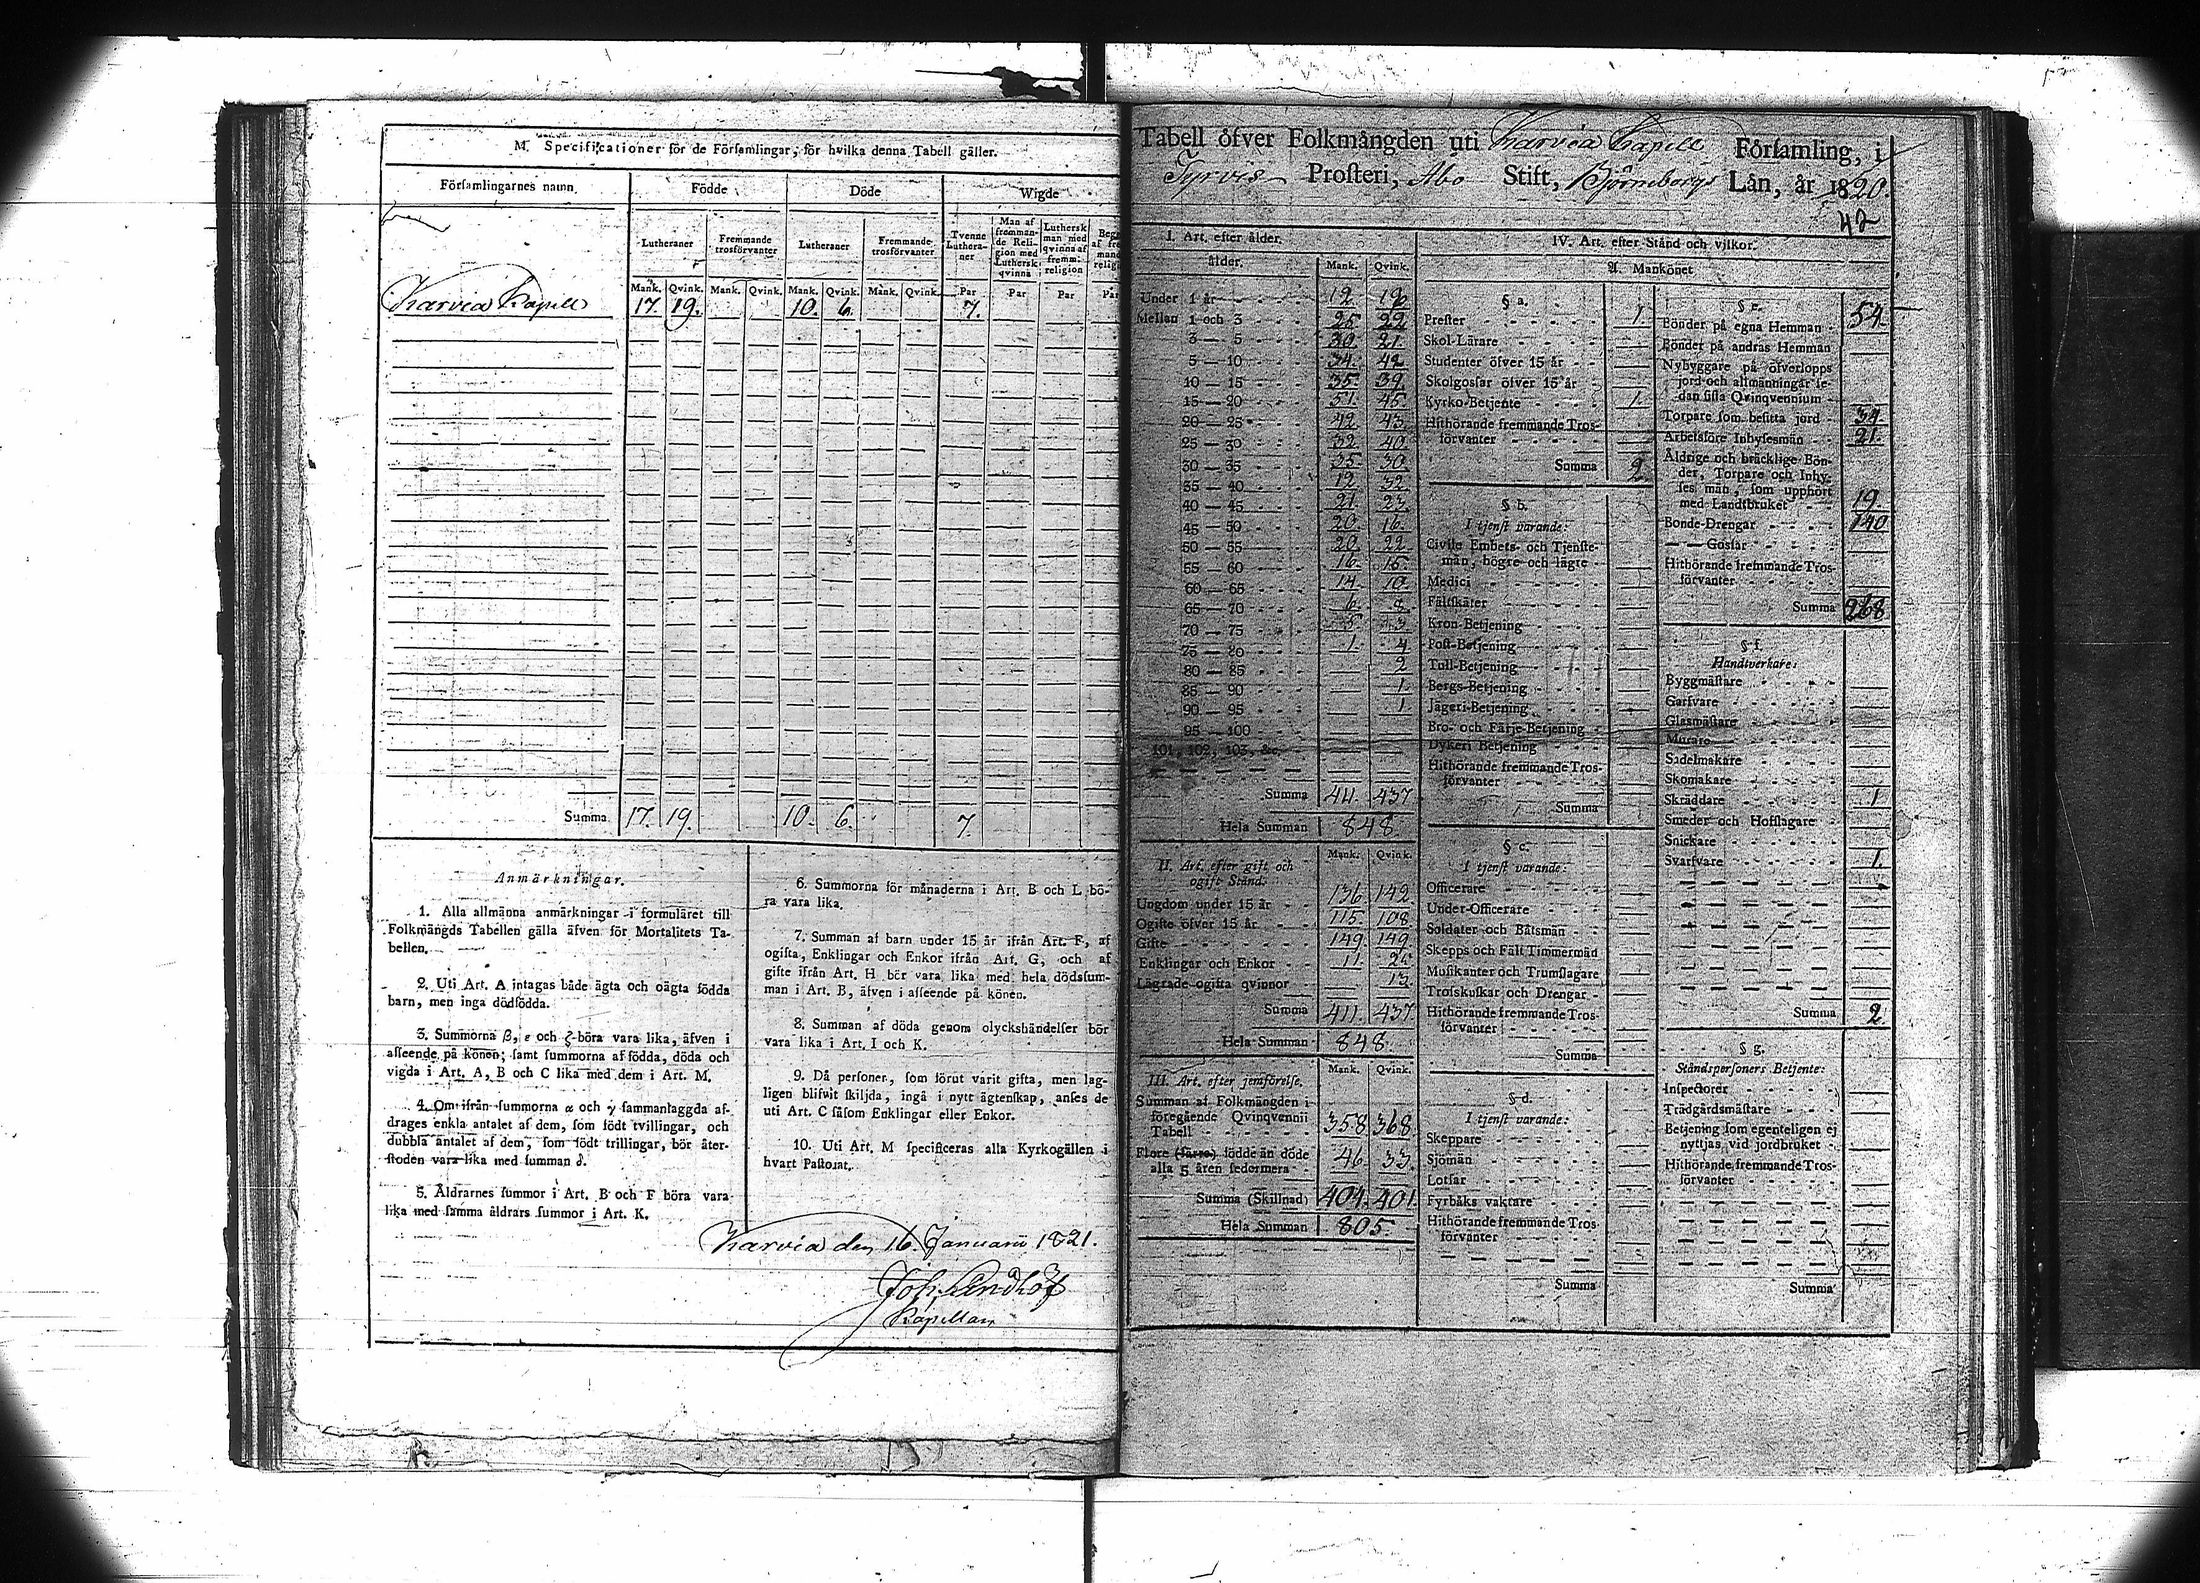 M. Specificationer för de Församlingar, för hvilka denna Tabell gäller.
Församlingarnes namn. Födde Döde Wigde
Lutheraner Fremmande trosförvanter Lutheraner Fremmande trosförvanter Tvenne Luthera-ner Man af fremman-de Reli-gion med Luthersk qvinna Luthersk man med qvinna af fremm: religion
Mank. Qvink. Mank. Qvink. Mank. Qvink. Mank. Qvink. Par Par Par Par
Karvia Kapell 17. 19. 10. 6. 7.
Summa 17. 19. 10. 6. 7.
Anmärkningar.
1. Alla allmänna anmärkningar i formuläret till
Folkmängds Tabellen gälla äfven för Mortalitets Ta-
bellen.
2. Uti Art. A intagas både ägta och oägta födda
barn, men inga dödfödda.
3. Summorna β, ε och ζ böra vara lika, äfven i
afseende på könen; samt summorna af födda, döda och
vigda i Art. A, B och C lika med dem i Art. M.
4. Om ifrån summorna α och γ sammanlaggda af-
drages enkla antalet af dem, som födt tvillingar, och
dubbla antalet af dem, som födt trillingar, bör åter-
stoden vara lika med summan δ.
5. Åldrarnes summor i Art. B och F böra vara
lika med samma åldrars summor i Art. K.
6. Summorna för månaderna i Art. B och L bö-
ra vara lika.
7. Summan af barn under 15 år ifrån Art. F, af
ogifta, Enklingar och Enkor ifrån Art. G, och af
gifte ifrån Art. H bör vara lika med hela dödssum-
man i Art. B, äfven i afseende på könen.
8. Summan af döda genom olyckshändelser bör
vara lika i Art. I och K.
9. Då personer, som förut varit gifta, men lag-
ligen blifvit skiljda, ingå i nytt ägtenskap, anses de
uti Art. C såsom Enklingar eller Enkor.
10. Uti Art. M specificeras alla Kyrkogällen i
hvart Pastorat.
Karvia den 16 Januarii 1821.
Joh. Lindhöf
Kapellan
Tabell öfver Folkmängden uti Karvia Kapell Församling, i
Tyrvis Prosteri, Åbo Stift, Björneborgs Län, år 1820.
42
I. Art. efter ålder.
ålder. Mank. Qvink.
Under 1 år 12 16
Mellan 1 och 3 25 22
3 — 5 30 21.
5 — 10 34 42
10 — 15 35. 39.
15 — 20 51. 45
20 — 25 42 43.
25 — 30 32 40
30 — 35 35. 30.
35 — 40 12 32
40 — 45 21 23
45 — 50 20 16.
50 — 55 20 22
55 — 60 16 15
60 — 65 14 10
65 — 70 6 8
70 — 75 5 3
75 — 80 1 4
80 — 85 2
85 — 90 1
90 — 95 1
95 — 100
101, 102, 103, &c.
Summa 411. 437
Hela Summan 848.
II. Art. efter gift och ogift Stånd. Mank. Qvink.
Ungdom under 15 år 136 142
Ogifte öfver 15 år 115 108
Gifte 149 149
Enklingar och Enkor 11. 25
Lägrade ogifta qvinnor 13.
Summa 411 437
Hela Summan 848
III. Art. efter jemförelse. Mank. Qvink.
Summan af Folkmängden i
föregående Qvinqvennii
Tabell 358 368
Flere (färre) födde än döde
alla 5 åren sedermera 46 33
Summa (Skillnad) 404. 401.
Hela Summan 805.
IV. Art. efter Stånd och vilkor.
A. Mankönet
§ a.
Prester 1.
Skol-Lärare
Studenter öfver 15 år
Skolgossar öfver 15 år
Kyrko-Betjente 1.
Hithörande fremmande Tros-
förvanter
Summa 2.
§ b.
I tjenst varande:
Civile Embets- och Tjenste-
män, högre och lägre
Medici
Fältskärer
Kron-Betjening
Post-Betjening
Tull-Betjening
Bergs-Betjening
Jägeri-Betjening
Bro- och Färje-Betjening
Dykeri Betjening
Hithörande fremmande Tros-
förvanter
Summa
§ c.
I tjenst varande:
Officerare
Under-Officerare
Soldater och Båtsmän
Skepps och Fält Timmermän
Musikanter och Trumslagare
Trosskuskar och Drengar
Hithörande fremmande Tros-
förvanter
Summa
§ d.
I tjenst varande:
Skeppare
Sjömän
Lotsar
Fyrbåks vaktare
Hithörande fremmande Tros-
förvanter
Summa
§ e.
Bönder på egna Hemman 54.
Bönder på andras Hemman
Nybyggare på öfverlopps
jord och allmänningar se-
dan sista Qvinqvennium
Torpare som besitta jord 34
Arbetsföre Inhysesmän 21.
Åldrige och bräcklige Bön-
der, Torpare och Inhy-
ses män, som upphört
med Landtbruket 19
Bonde-Drengar 140
— — Gossar
Hithörande fremmande Tros-
förvanter
Summa 268
§ f.
Handtverkare:
Byggmästare
Garfvare
Glasmästare
Murare
Sadelmakare
Skomakare
Skräddare 1
Smeder och Hofslagare
Snickare
Svarfvare 1.
Summa 2.
§ g.
Ståndspersoners Betjente:
Inspectorer
Trädgårdsmästare
Betjening som egenteligen ej
nyttjas vid jordbruket
Hithörande fremmande Tros-
förvanter
Summa